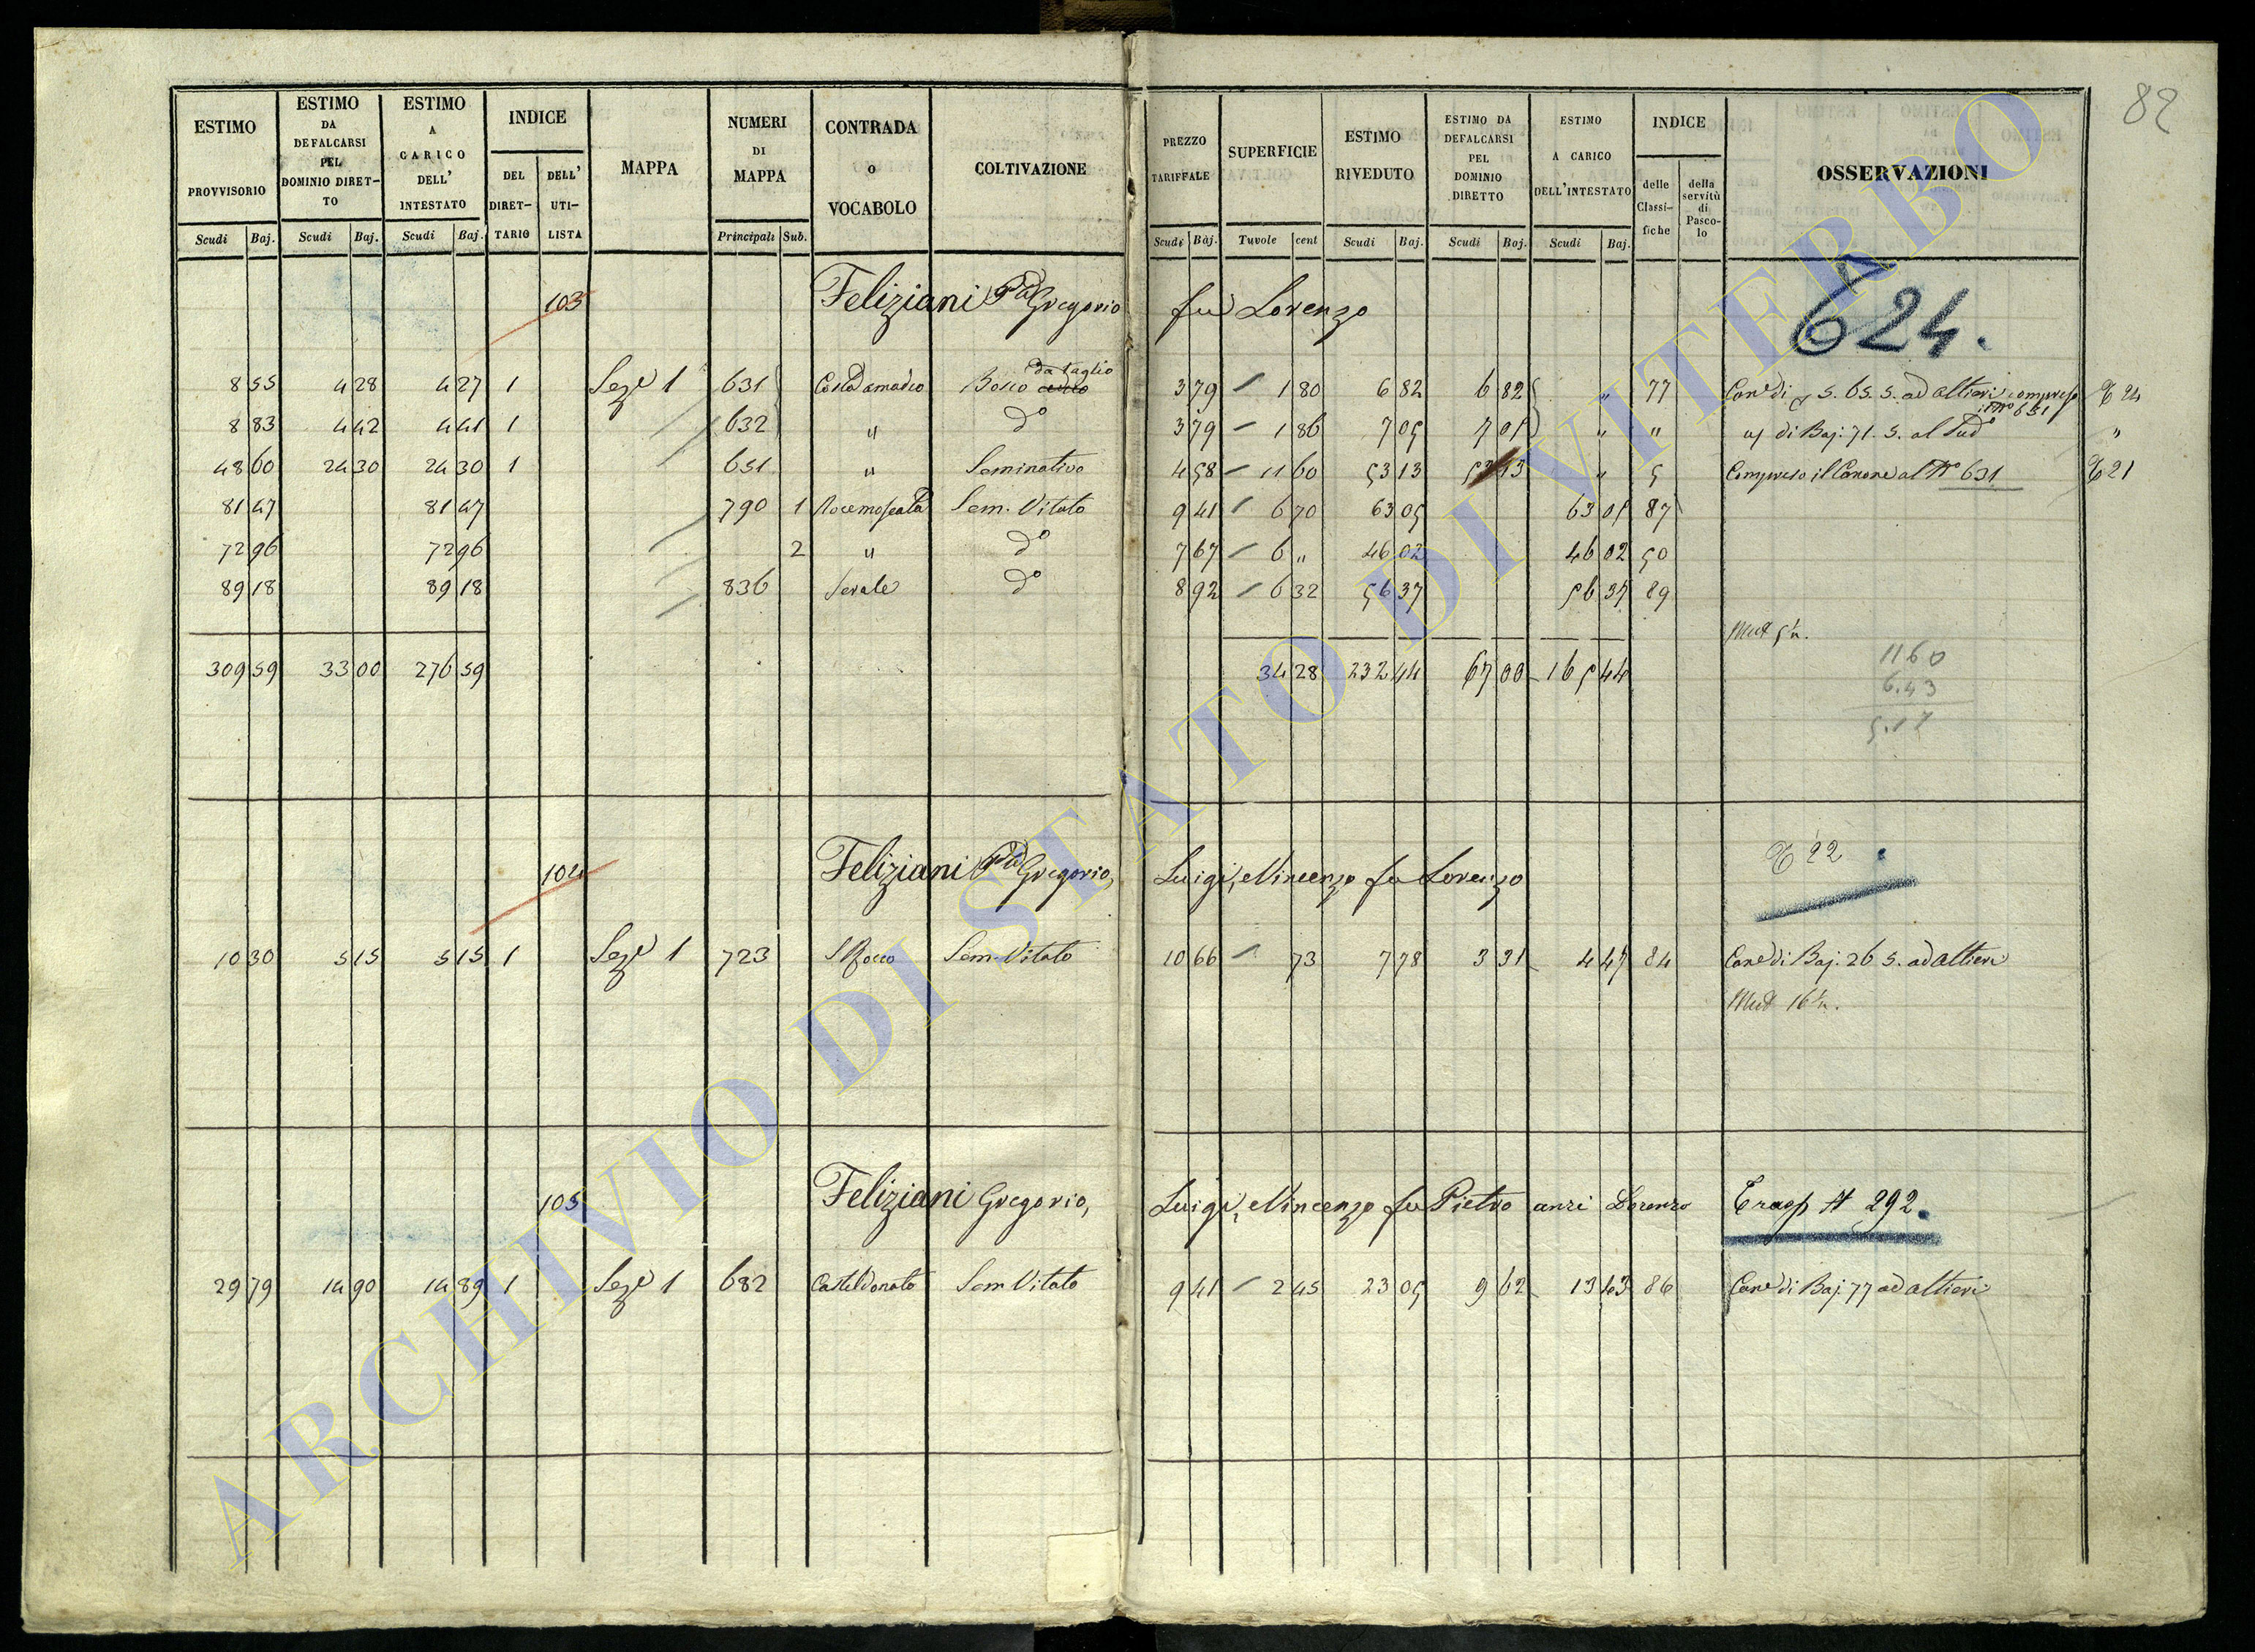 82
ESTIMO PROVVISORIO Scudi Baj.
ESTIMO DA DEFALCARSI PEL DOMINIO DIRETTO Scudi Baj.
ESTIMO A CARICO DELL' INTESTATO Scudi Baj.
INDICE DEL DIRETTARIO DELL' UTILISTA
MAPPA
NUMERI DI MAPPA Principali Sub.
CONTRADA o VOCABOLO
COLTIVAZIONE
PREZZO TARIFFALE Scudi Baj.
SUPERFICIE Tavole cent
ESTIMO RIVEDUTO Scudi Baj.
ESTIMO DA DEFALCARSI PEL DOMINIO DIRETTO Scudi Baj.
ESTIMO A CARICO DELL'INTESTATO Scudi Baj.
INDICE delle Classifiche della servitù di Pascolo
OSSERVAZIONI
103 Feliziani Gregorio fu Lorenzo 624.
da taglio
8 55 4 28 4 27 1 Sez.e 1 631 Bosco 3 79 1 80 6 82 6 82 " 77 ad Altieri compreso
il N° 651
8 83 4 42 4 41 1 632 " d° 3 79 1 86 7 05 7 05 " " di Baj: 71. 5. al Sud°
"
48 60 24 30 24 30 1 651 " Seminativo 4 58 11 60 53 13 53 13 " 5 Compreso il Canone al N° 631
81 47 81 47 790 1 Sem. Vitato 9 41 6 70 63 05 63 05 87
72 96 72 96 2 " d° 7 67 6 " 46 02 46 02 50
89 18 89 18 836 d° 8 92 6 32 56 37 56 37 89
309 59 33 00 276 59 34 28 232 44 67 00 165 44
1160
6.43
5.17
104 Feliziani Gregorio, Luigi, e Vincenzo fu Lorenzo 22
10 30 5 15 5 15 1 Sez.e 1 723 S Rocco Sem. Vitato 10 66 73 7 78 3 31 4 47 84 Can.e di Baj. 26 5. ad Altieri
105 Feliziani Gregorio, Luigi, e Vincenzo fu Pietro anzi Lorenzo Trasp A 292.
29 79 14 90 14 89 1 Sez.e 1 682 Casteldonato Sem Vitato 9 41 2 45 23 05 9 62 13 43 86 Can.e di Baj. 77 ad Altieri
ARCHIVIO DI STATO DI VITERBO